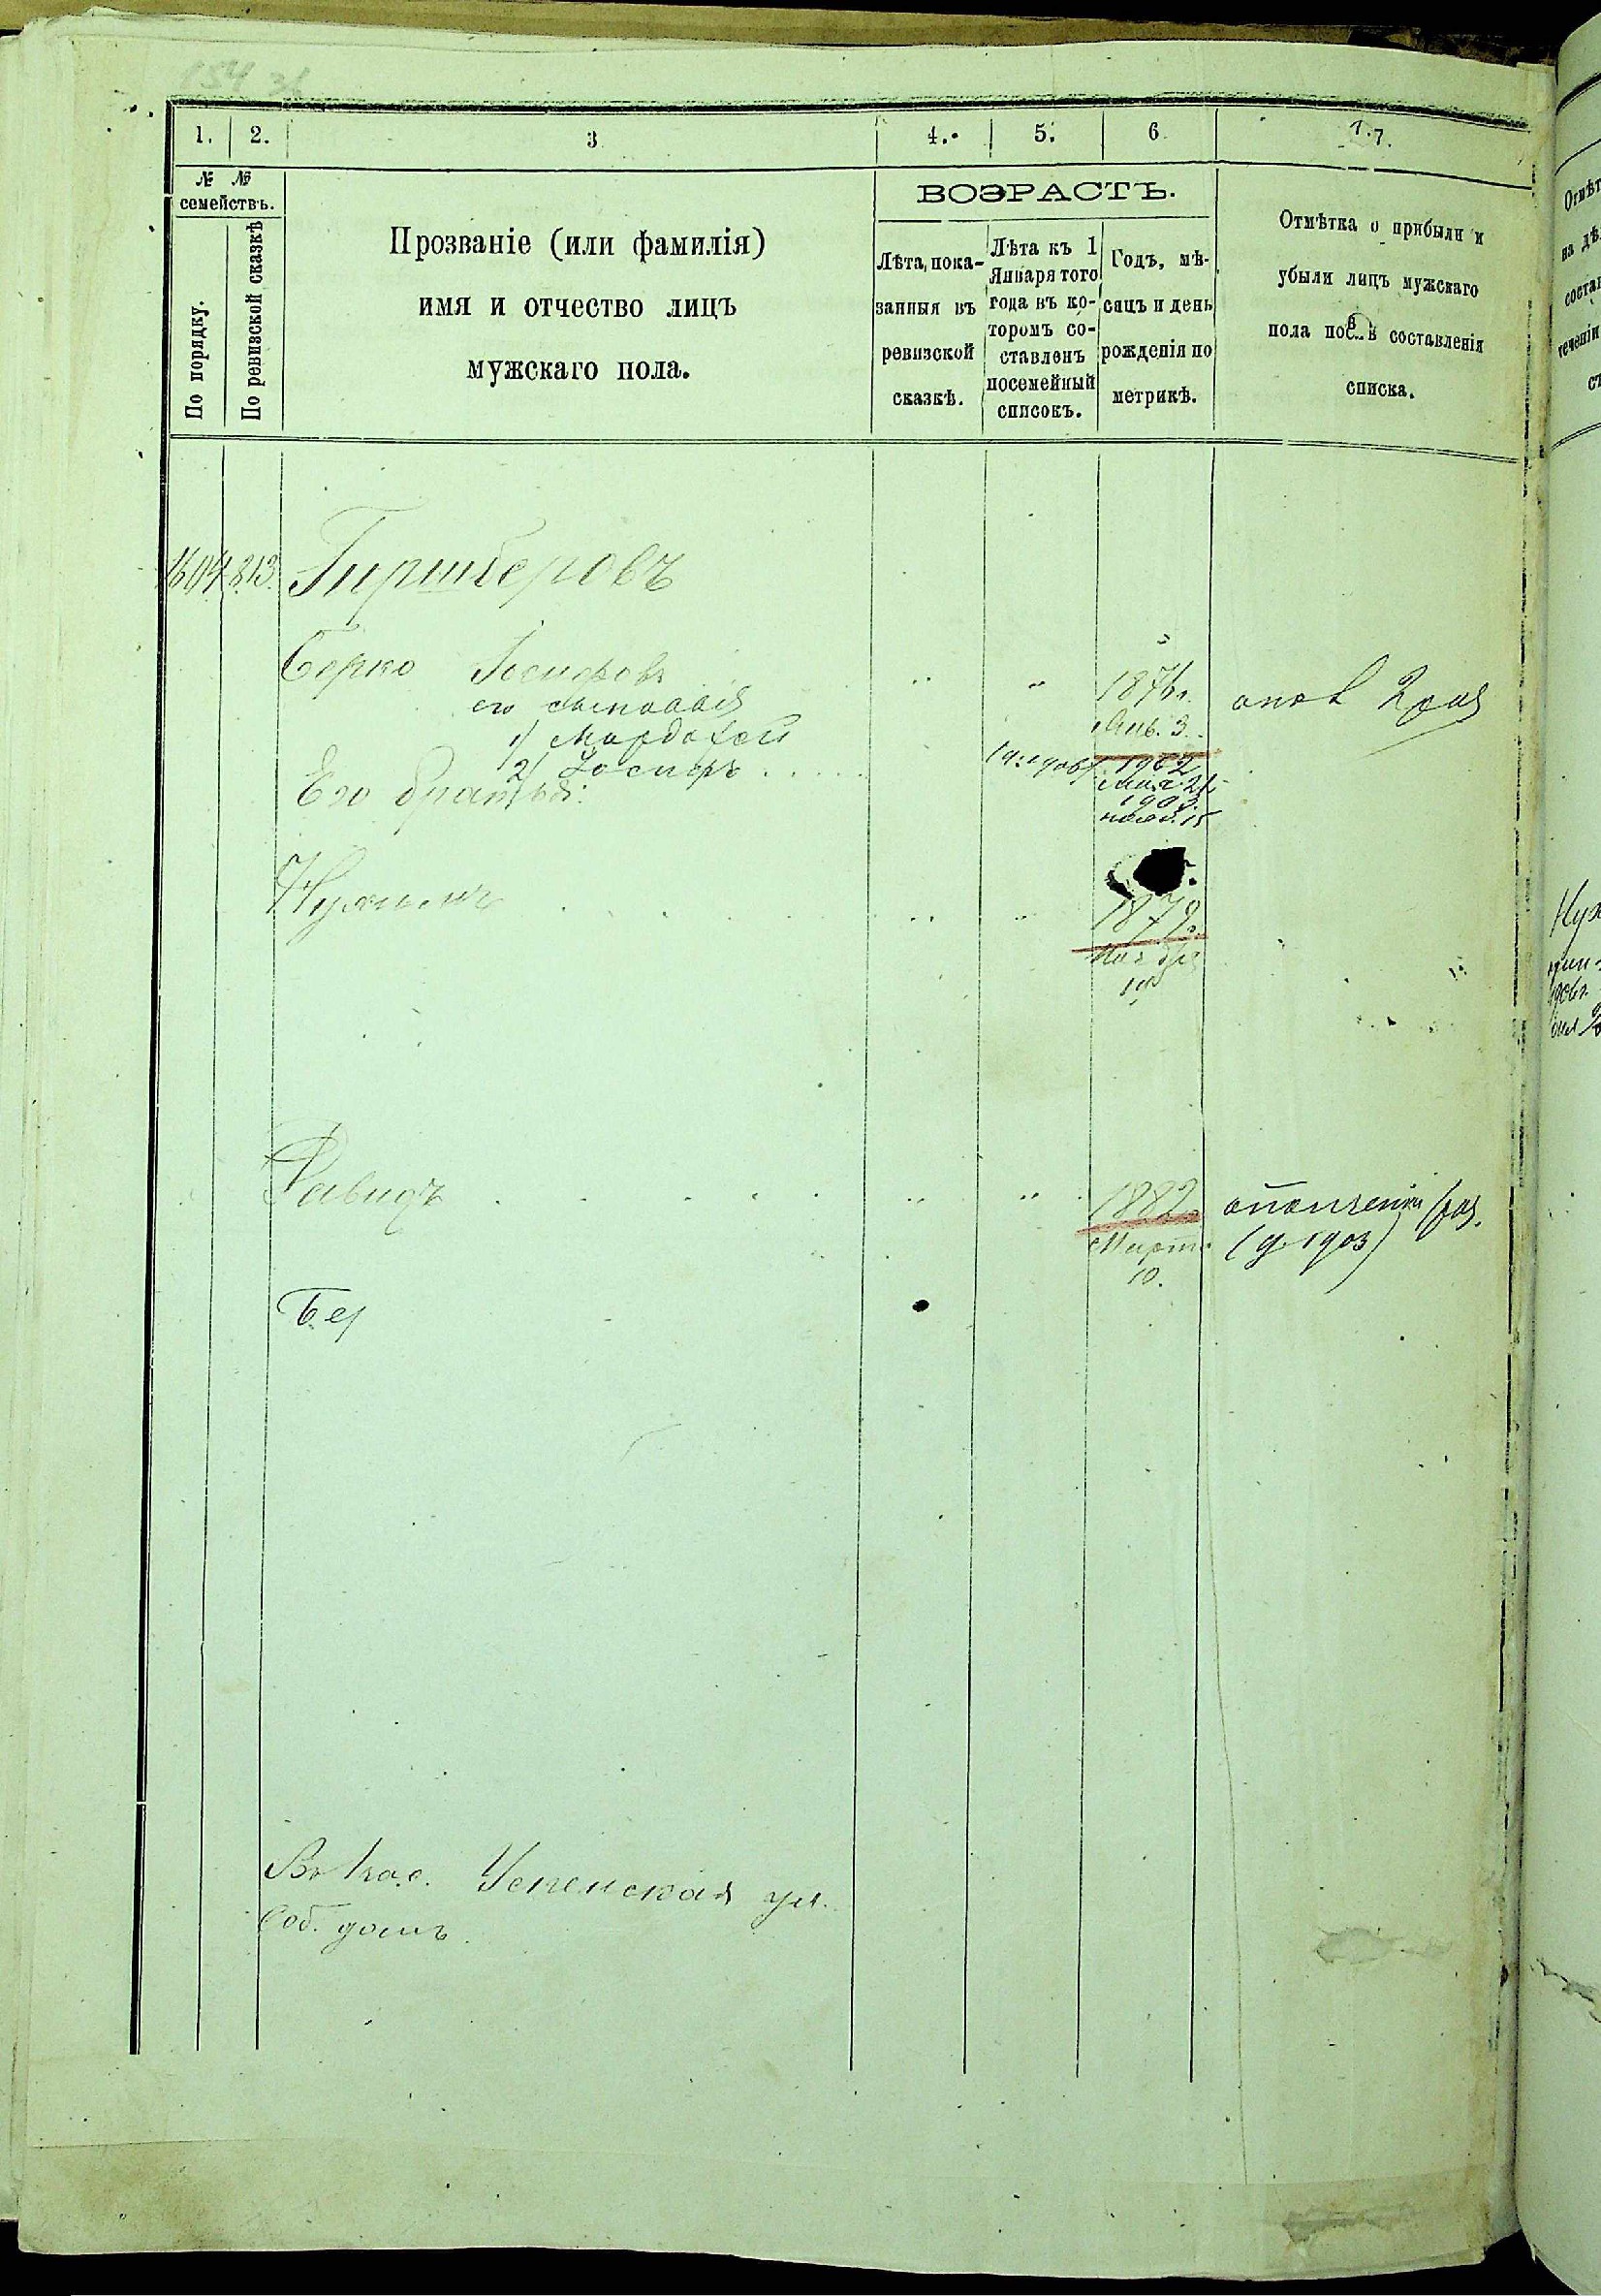 1. 2. 3 4. 5. 6 7.
№ №
семействъ.
По порядку.
По ревизской сказкѣ
Прозваніе (или фамилія)
имя и отчество лицъ
мужскаго пола.
ВОЗРАСТЪ.
Лѣта, пока-
занныя въ
ревизской
сказкѣ.
Лѣта къ 1
Января того
года въ ко-
торомъ со-
ставленъ
посемейный
списокъ.
Годъ, мѣ-
сяцъ и день
рожденія по
метрикѣ.
Отмѣтка о прибыли и
убыли лицъ мужскаго
пола
составленія
списка.
1604 813. Гиршберовъ
Берко Іосифовъ 187
Янв. 3. 2 раз
его сыновья
1) Мордохей
2) Іосифъ 1902
Его братья:
15
Нухимъ 1879.
Ноября
Давидъ 1882. ополченіи
Марта (г. 1903)
10.
Бер
Успенская ул.
Соб. домъ.